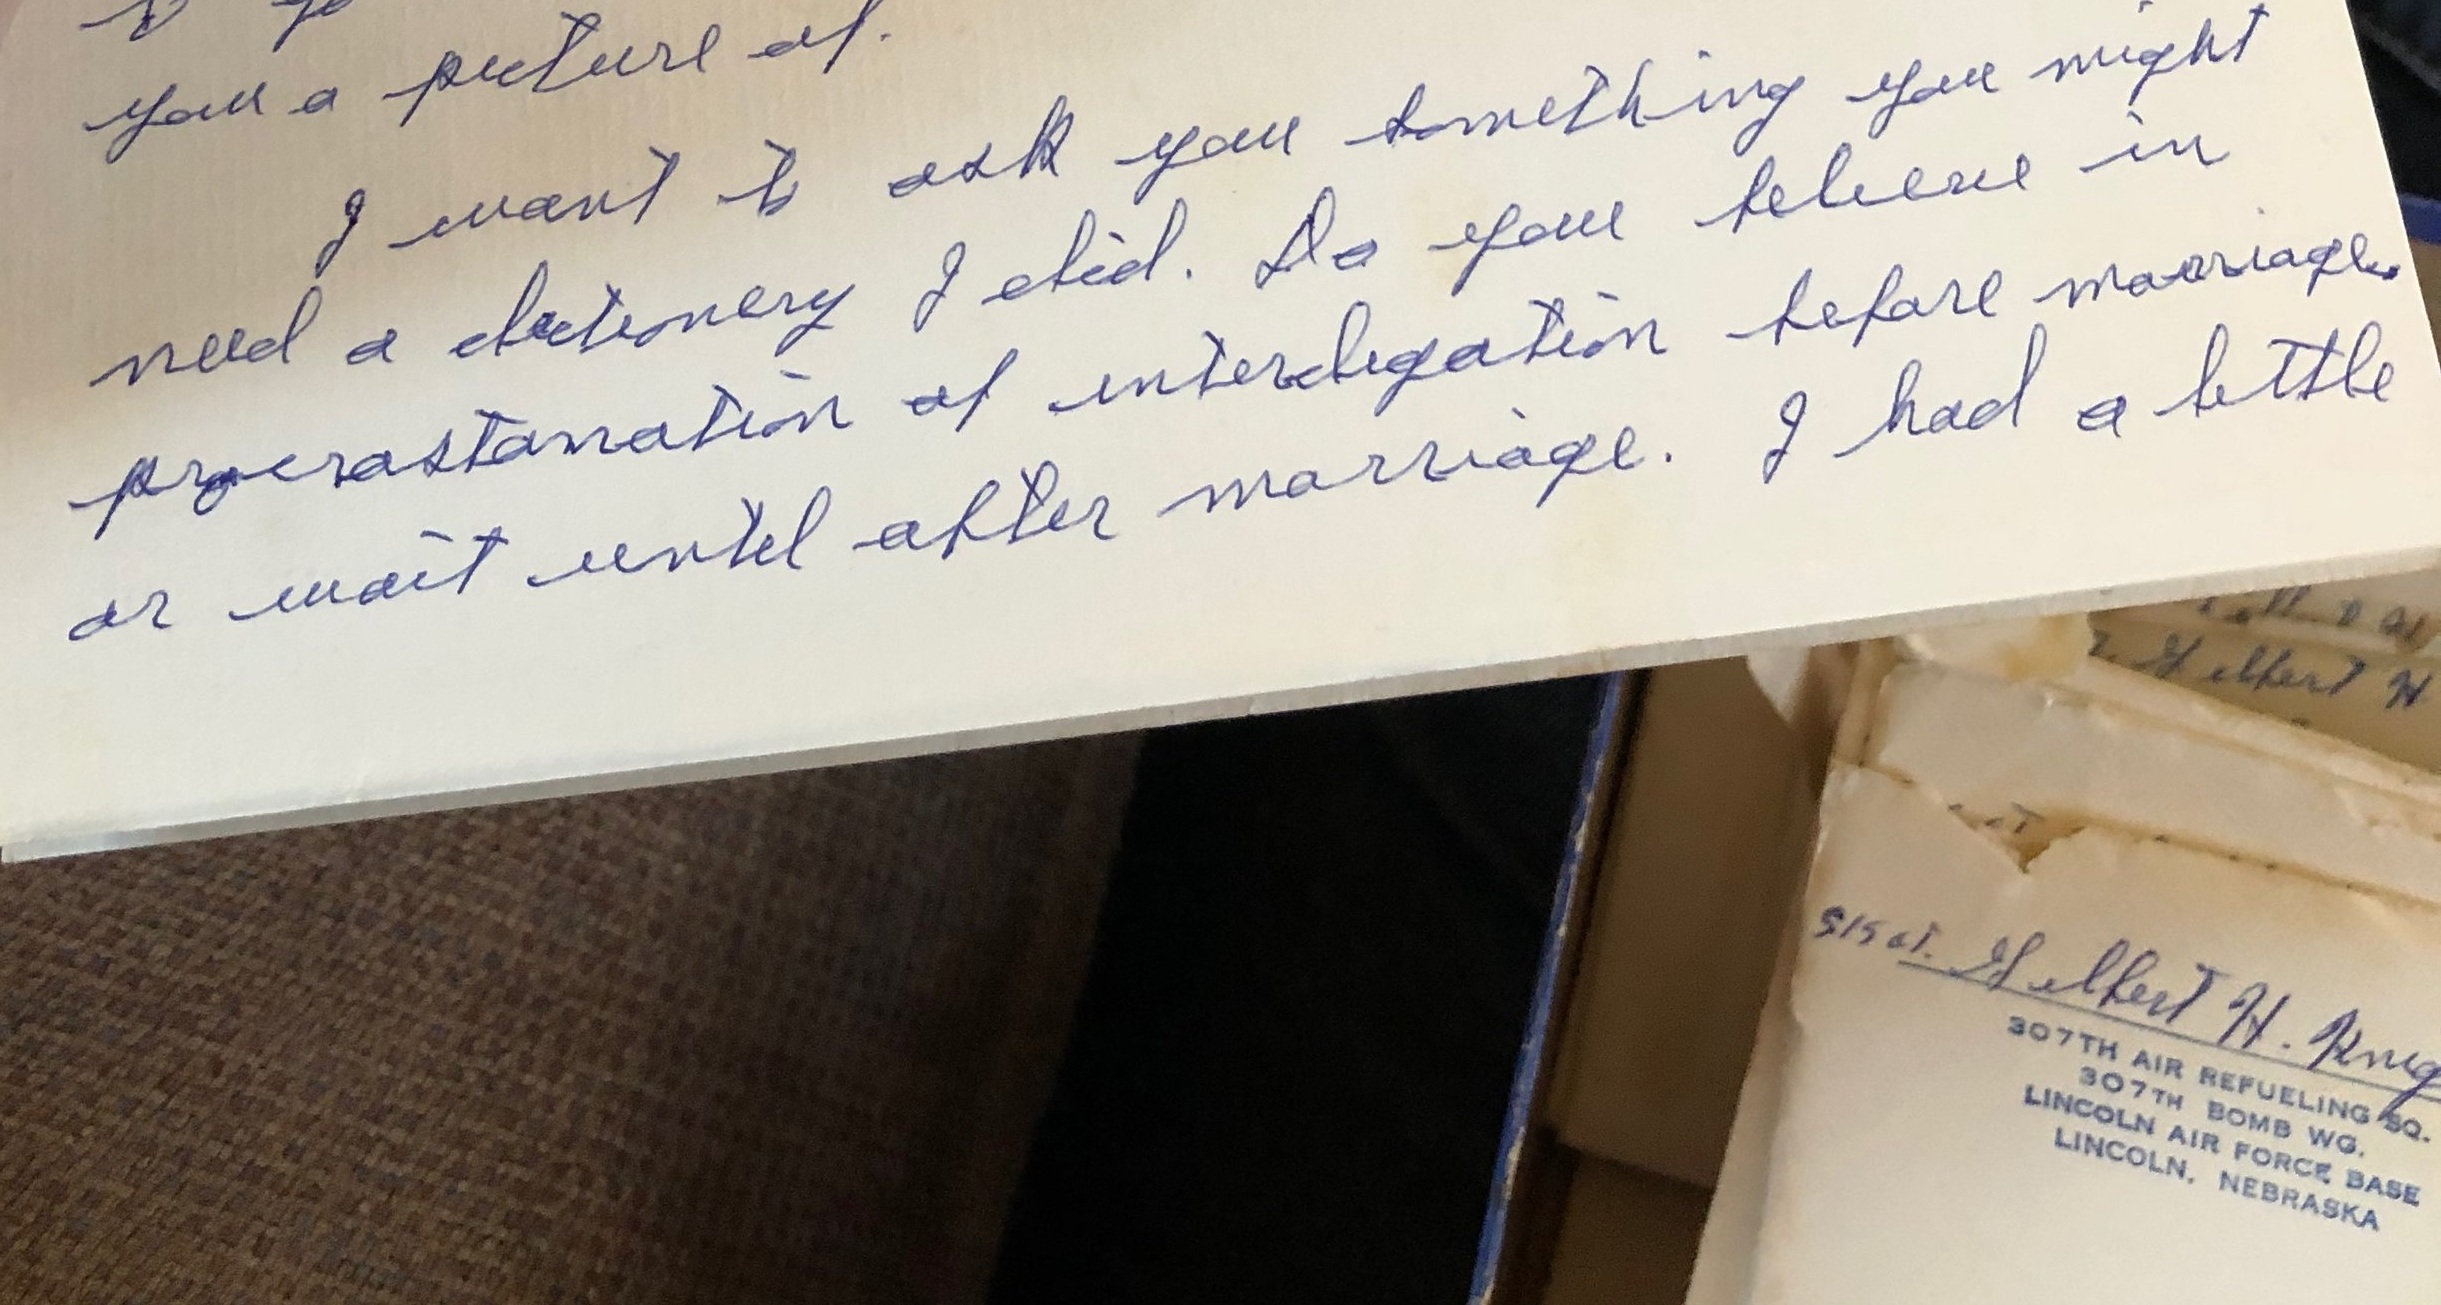 you a picture of.
I want to ask you something you might
need a dictionery I did. Do you believe in
procrastanation of interdigation before marriage.
or wait until after marriage. I had a little
Gilbert H
S/Sgt. Gilbert H.
307TH AIR REFUELING SQ.
307TH BOMB WG.
LINCOLN AIR FORCE BASE
LINCOLN, NEBRASKA